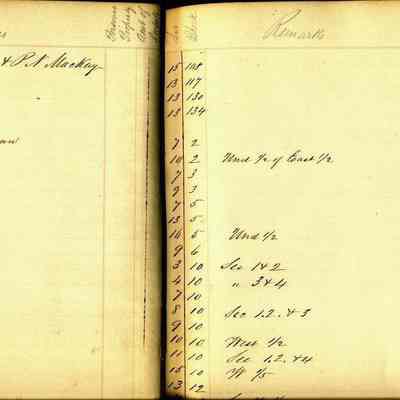 & P. N. Mackay
Lot Block Remarks
15 108
13 117
13 130
13 134
7 2
10 2 Und 1/2 of East 1/2
7 3
9 3
7 5
13 5
16 5 Und 1/2
9 6
3 10 Sec 1 & 2
4 10 " 3 & 4
7 10
8 10 Sec 1. 2. & 3
9 10
10 10 West 1/2
11 10 Sec 1. 2. & 4
15 10 W 1/5
13 12